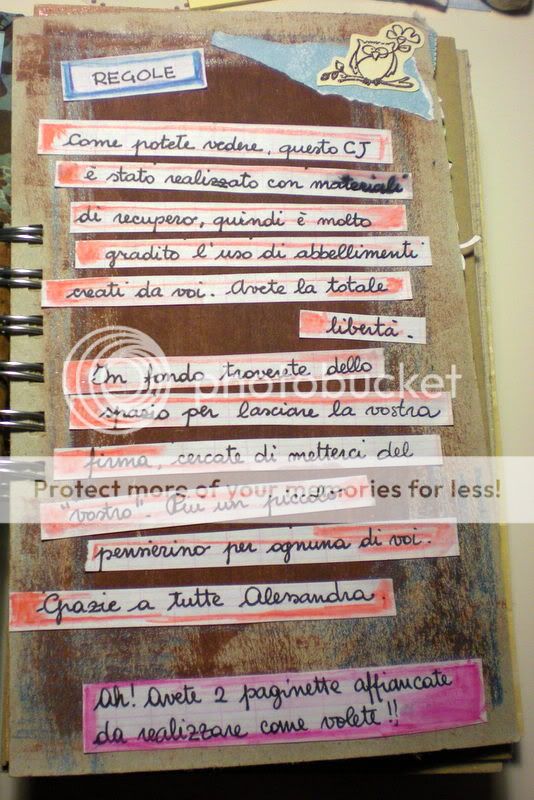 REGOLE
Come potete vedere, questo CJ
è stato realizzato con materiali
di recupero, quindi è molto
gradito l'uso di abbellimenti
creati da voi. Avete la totale
libertà.
In fondo troverete dello
spazio per lasciare la vostra
photobucket
firma, cercate di metterci del
Protect more of your memories for less!
"vostro". Più un piccolo
pensierino per ognuna di voi.
Grazie a tutte Alessandra.
Ah! Avete 2 paginette affiancate
da realizzare come volete!!